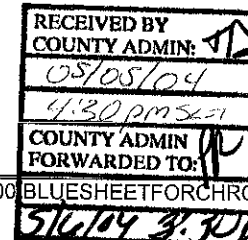 RECEIVED BY
COUNTY ADMIN:
05/05/04
4:30 pm
COUNTY ADMIN
FORWARDED TO:
00 BLUESHEETFORCHRO
5/6/04 3:30